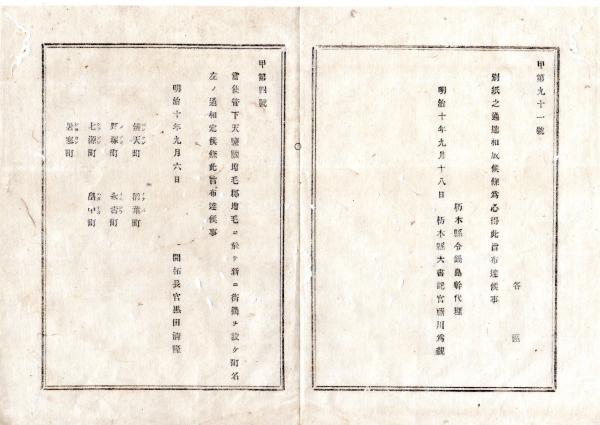 甲第九十一號
各區
別紙之通達相成候條爲心得此旨布達候事
栃木縣令鍋島幹代理
明治十年九月十八日 栃木縣大書記官藤川爲親
甲第四號
當使管下天鹽國增毛郡增毛ニ於テ新ニ街衢ヲ設ケ町名
左ノ通相定候條此旨布達候事
明治十年九月六日 開拓長官黒田清隆
辨天町 町
野塚町 永壽町
七源町 畠中町
暑寒町